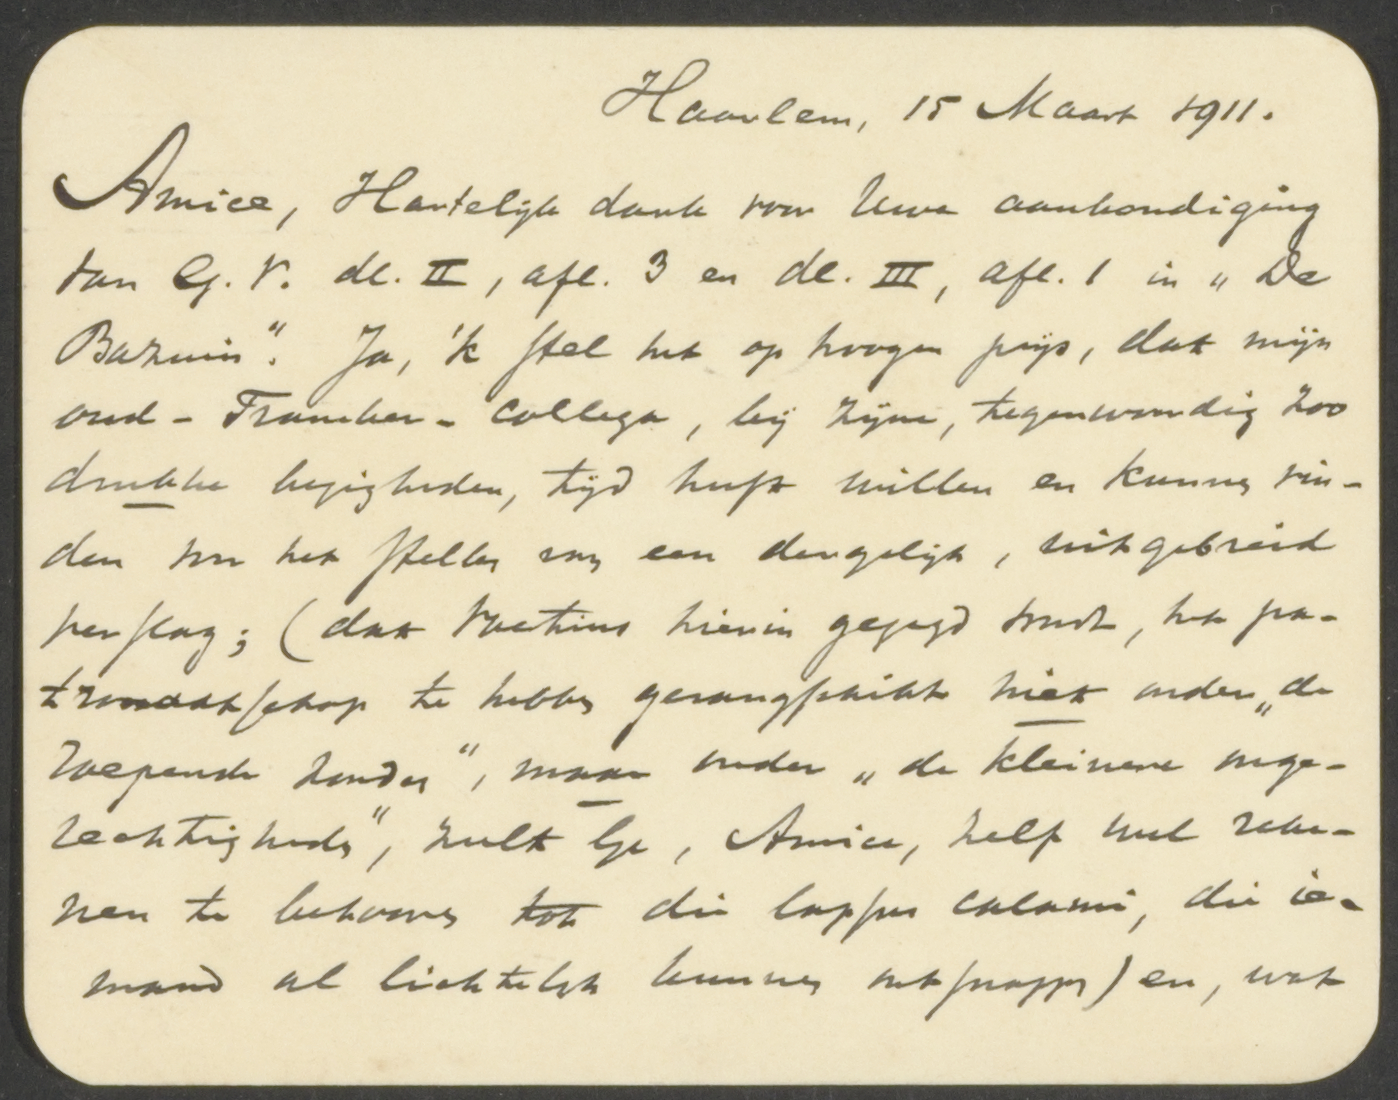 Haarlem, 15 Maart 1911.
Amice, Hartelijk dank voor Uwe aankondiging
van G. V. dl. II, afl. 3 en dl. III, afl. 1 in „De
Bazuin“. Ja, 'k stel het op hoogen prijs, dat mijn
oud-Franeker-collega, bij zijne, tegenwoordig zoo
drukke bezigheden, tijd heeft willen en kunnen vin-
den voor het stellen van een dergelijk, uitgebreid
verslag; (dat Voetius hierin gezegd wordt, het pa-
tronaatschap te hebben gerangschikt niet onder „de
roepende zonden“, maar onder „de kleinere onge-
rechtigheden“, zult Ge, Amice, zelf wel reke-
nen te behooren tot die lapsus calami, die ie-
mand al lichtelijk kunnen ontsnappen) en, wat